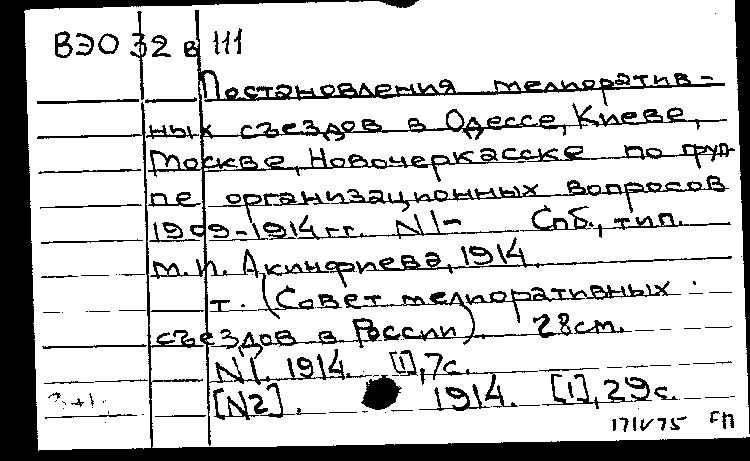 ВЭО 32 в 111
Постановления мелиоратив-
ных съездов в Одессе, Киеве,
Москве, Новочеркасске по груп-
пе организационных вопросов
1909-1914 гг. N 1- Спб., тип.
М. П. Акинфиева, 1914.
т. (Совет мелиоративных
съездов в России). 28см.
N 1. 1914. [1], 7с.
[N2]. 1914. [1], 29с.
3+1
17IV75 ГП